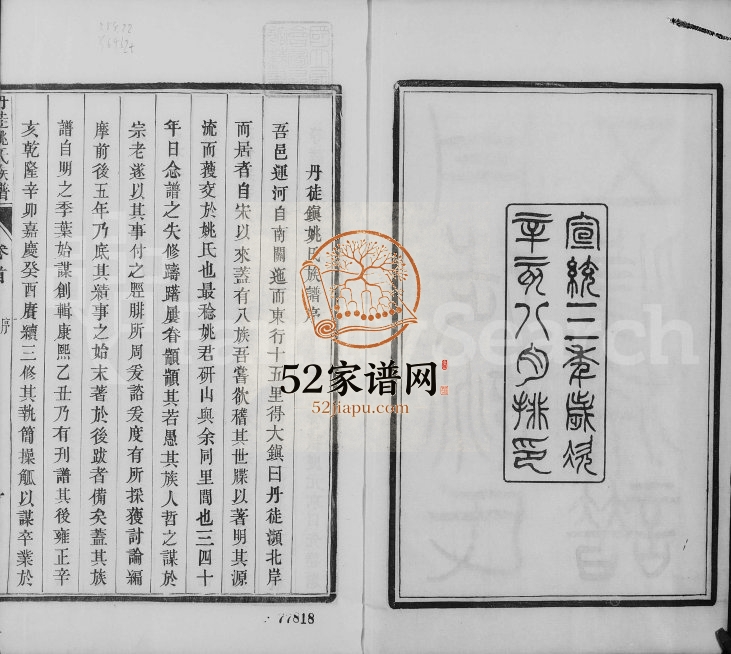 宣統三年歲次
辛亥八月排印
丹徒鎮姚氏族譜序
吾邑運河自南關迤而東行十五里得大鎮曰丹徒瀕北岸
而居者自宋以來蓋有八族吾嘗欲稽其世牒以著明其源
流而獲交於姚氏也最稔姚君研山與余同里閈也三四十
年日念譜之失修躊躇屢眷顴顇其若愚其族人哲之謀於
宗老遂以其事付之脛腓所周爰諮爰度有所採獲討論編
摩前後五年乃底其績事之始末著於後跋者備矣蓋其族
譜自明之季葉始謀創輯康熙乙丑乃有刊譜其後雍正辛
亥乾隆辛卯嘉慶癸酉賡續三修其執簡操觚以謀卒業於
丹徒姚氏族譜
卷首
序
52家谱网
52jiapu.com
77818